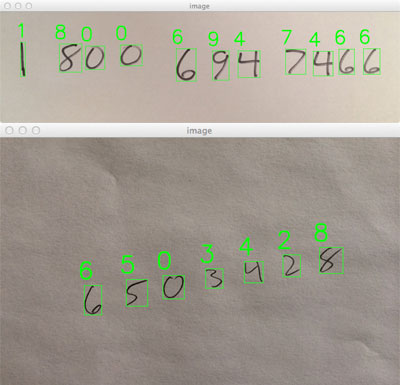 image
1 8 0 0 6 9 4 7 4 6 6
1 800 694 7466
image
6 5 0 3 4 2 8
6503428